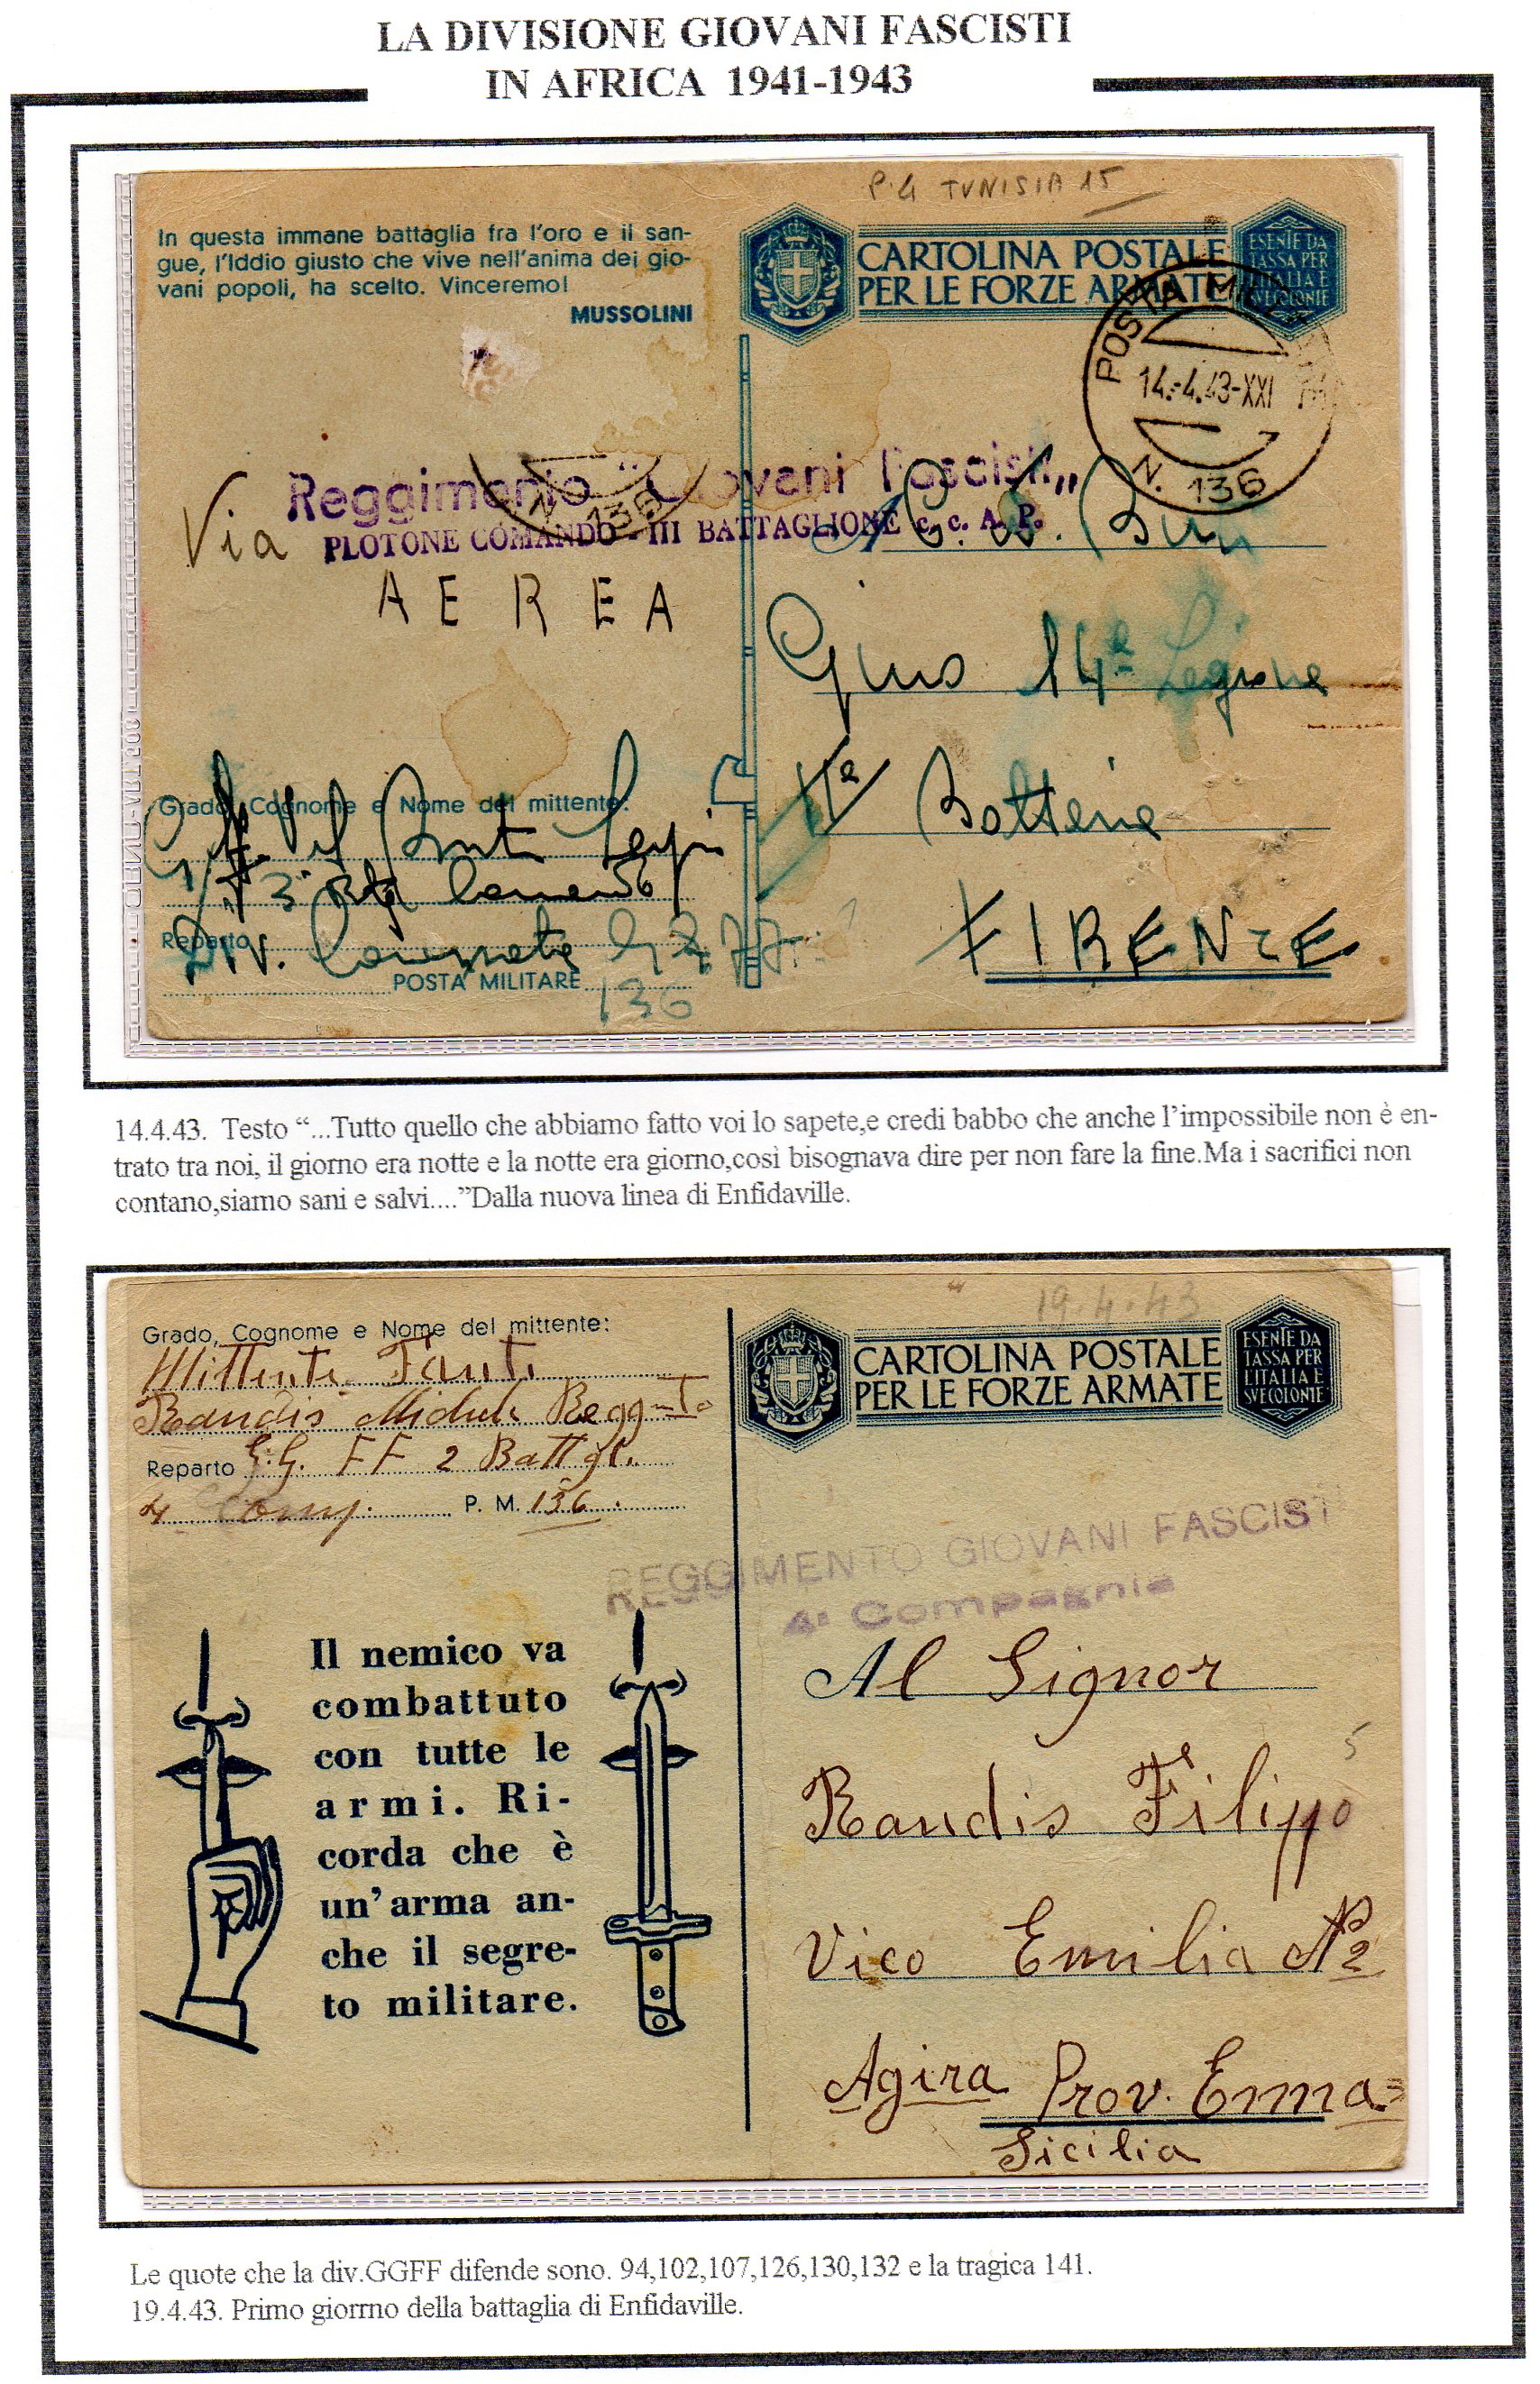 LA DIVISIONE GIOVANI FASCISTI
IN AFRICA 1941-1943
P.G TUNISIA 15
In questa immane battaglia fra l'oro e il san-
gue, l'Iddio giusto che vive nell'anima dei gio-
vani popoli, ha scelto. Vinceremo!
MUSSOLINI
CARTOLINA POSTALE
PER LE FORZE ARMATE
ESENTE DA
TASSA PER
L'ITALIA E
SVE COLONIE
POSTA MILITARE
14.-4.43-XXI
N. 136
N. 136
Reggimento "Giovani Fascisti„
PLOTONE COMANDO - III BATTAGLIONE c. c. A. P.
Via
AEREA
14ª Legione
IIª Batteria
FIRENZE
Grado, Cognome e Nome del mittente:
3
Reparto
Div. GG FF
POSTA MILITARE
136
14.4.43. Testo “...Tutto quello che abbiamo fatto voi lo sapete,e credi babbo che anche l’impossibile non è en-
trato tra noi, il giorno era notte e la notte era giorno,così bisognava dire per non fare la fine.Ma i sacrifici non
contano,siamo sani e salvi....”Dalla nuova linea di Enfidaville.
19.4.43
Grado, Cognome e Nome del mittente:
Mittente Fante
Randis Michele Reggnto
Reparto G.G. FF 2 Battgl.
4 Comp. P. M. 136.
CARTOLINA POSTALE
PER LE FORZE ARMATE
ESENTE DA
TASSA PER
L'ITALIA E
SVE COLONIE
REGGIMENTO GIOVANI FASCISTI
4ª Compagnia
Il nemico va
combattuto
con tutte le
armi. Ri-
corda che è
un'arma an-
che il segre-
to militare.
Al Signor
5
Randis Filippo
Vico Emilia Nº2
Agira Prov. Enna=
Sicilia
Le quote che la div.GGFF difende sono. 94,102,107,126,130,132 e la tragica 141.
19.4.43. Primo giorrno della battaglia di Enfidaville.